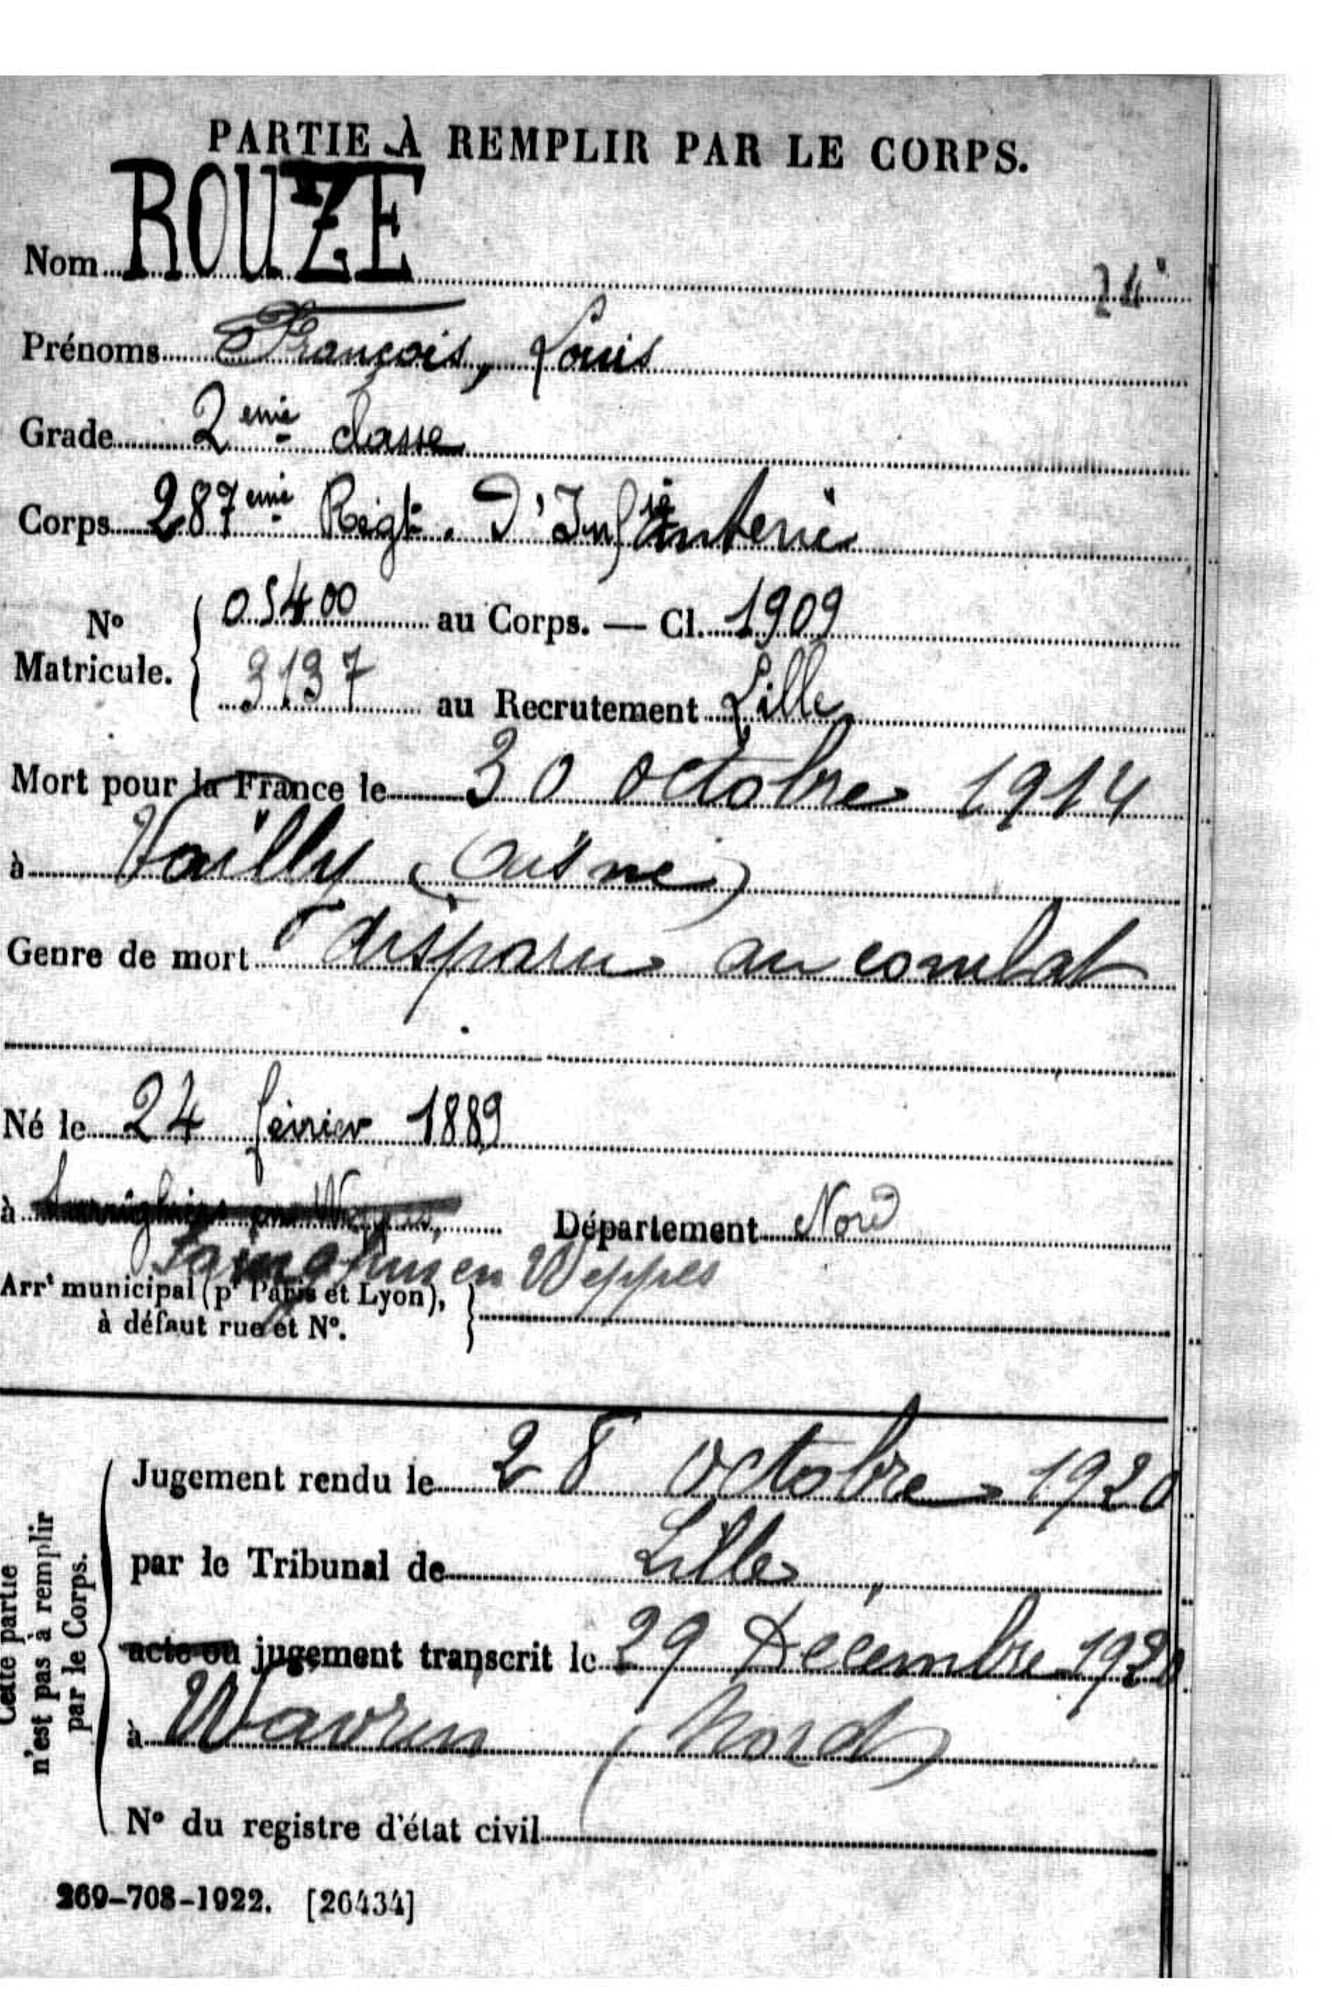 PARTIE À REMPLIR PAR LE CORPS.
Nom ROUZE
24
Prénoms François, Louis
Grade 2eme classe
Corps 287eme Regt. D'Infanterie
No Matricule. { 05400 au Corps. — Cl. 1909
3137 au Recrutement Lille
Mort pour la France le 30 octobre 1914
à Vailly (Aisne)
Genre de mort disparu au combat
Né le 24 février 1889
à Département Nord
Sainghin en Weppes
Arrt municipal (pr Paris et Lyon), }
à défaut rue et No.
Cette partie
n'est pas à remplir
par le Corps.
Jugement rendu le 28 octobre 1920
par le Tribunal de Lille
acte ou jugement transcrit le 29 Décembre 1920
à Wavrin (Nord)
No du registre d'état civil
269-708-1922. [26434]